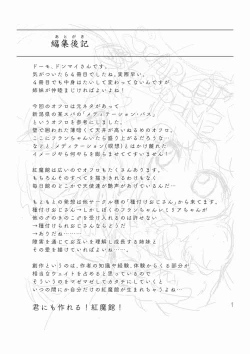 あとがき
編集後記
ドーモ、ドンマイさんです。
気がついたらも冊目でしたね。実際早い。
も冊目でも中身はたいして変わってないんですが
姉妹が仲睦まじければよいよね!
今回のオフロは元ネタがあって
新潟県の某スパの「メディテーション・バス」
というオフロを参考にしました。
壁で囲われた薄暗くて天井が高いぬるめのオフロ。
ここにフランちゃんいたら盛り上がるだろうな…
などと、メディテーション(瞑想)とはかけ離れた
イメージから何やらを膨らませてすいません!
紅魔館は広いのでオフロもたくさんあります。
もちろんそのすべてを描ききれるわけもなく
毎日館のどこかで天使達が艶声があげているんだ…
もともとの発想は他サークル様の「種付けおじさん」から来てます。
種付けおじさん→しかしぼくのフランちゃんレミリアちゃんが
他のどのきのこを受け入れるのは許せない
→種付けられおじさんならどうだ
→ありだな…
障害を通じてお互いを理解し成長する姉妹と
その愛を描けていればよいよね…
創作というのは、作者の知識や経験、体験からくる部分が
相当なウェイトを占めると思っているので
そういうのをマゼマゼしてカタチにしていくと
いつの間にか自分だけの紅魔館が生まれちゃうよね…
君にも作れる!紅魔館!